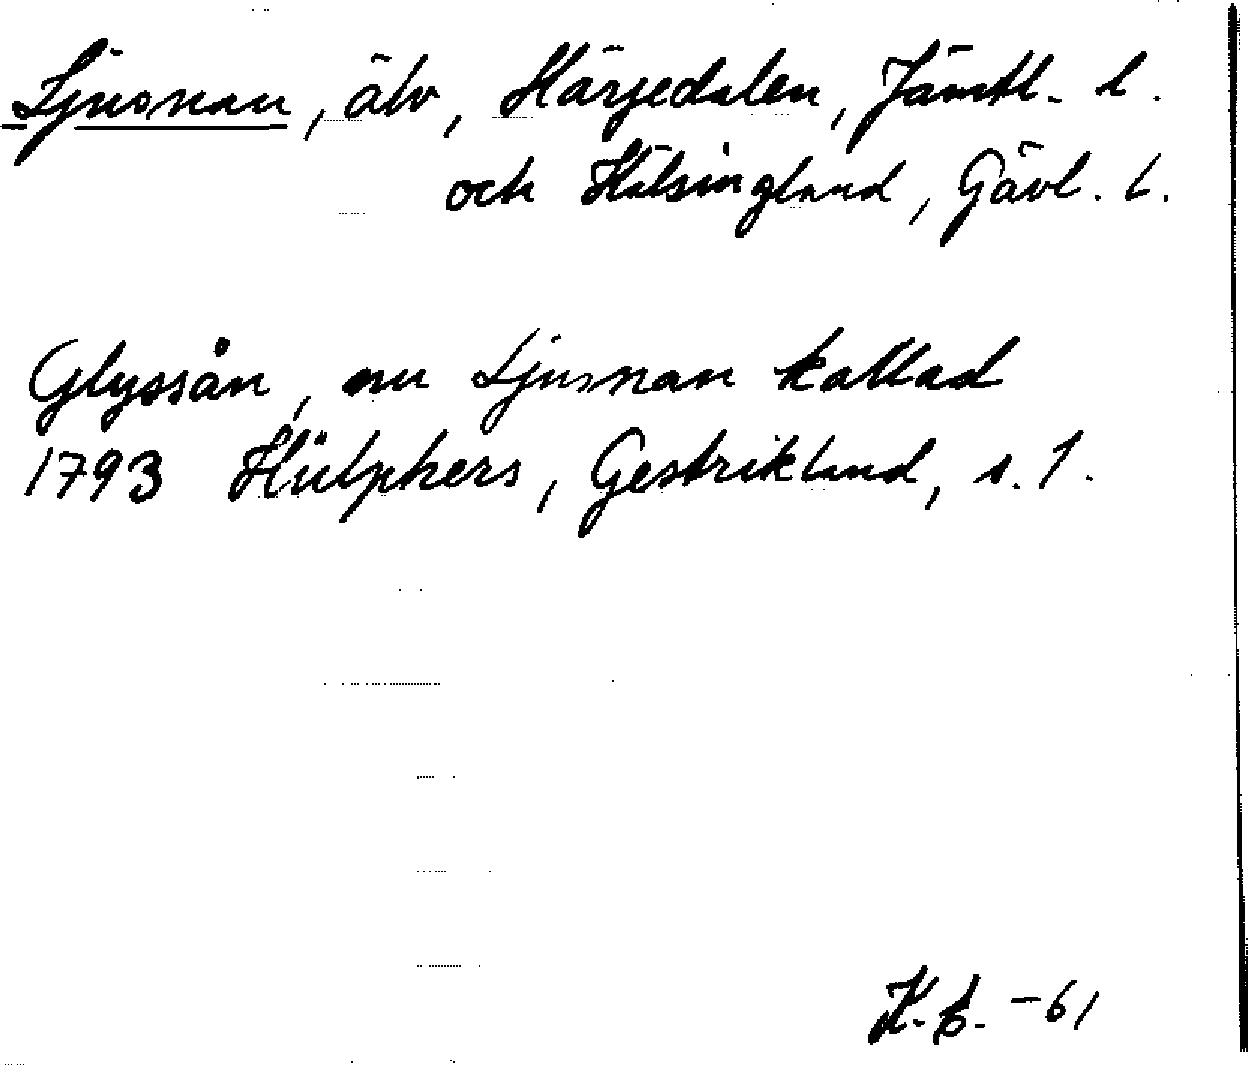 Ljusnan, älv, Härjedalen, Jämtl. l.
och Hälsingland, Gävl. l.
Glyssån, nu Ljusnan kallad
1793 Hülphers, Gestrikland, s. 1.
K. -61